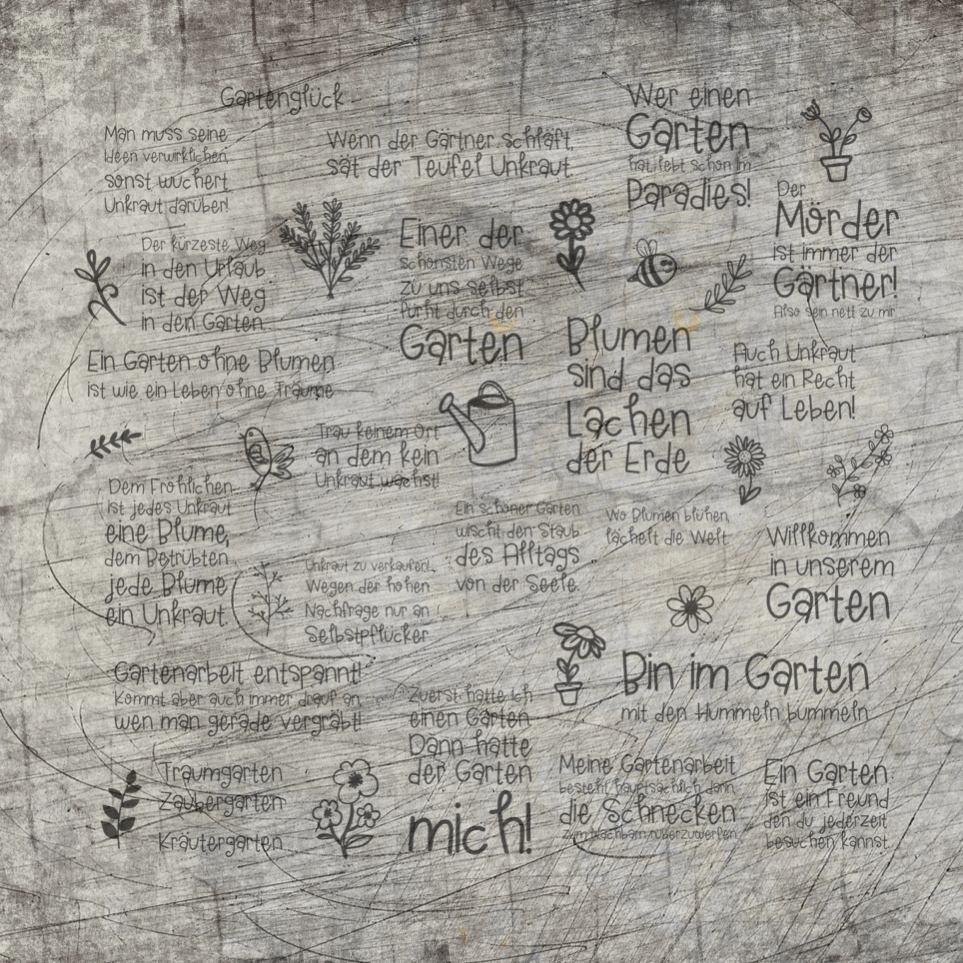 Gartenglück
Man muss seine
Ideen verwirklichen,
sonst wuchert
Unkraut darüber!
Wenn der Gärtner schläft,
sät der Teufel Unkraut.
Wer einen
Garten
hat, lebt schon im
Paradies!
Der
Mörder
ist immer der
Gärtner!
Also sein nett zu mir
Der kürzeste Weg
in den Urlaub
ist der Weg
in den Garten.
Einer der
schönsten Wege
zu uns selbst
führt durch den
Garten
Blumen
sind das
Lachen
der Erde
Auch Unkraut
hat ein Recht
auf Leben!
Ein Garten ohne Blumen
ist wie ein Leben ohne Träume
Trau keinem Ort
an dem kein
Unkraut wächst!
Dem Fröhlichen
ist jedes Unkraut
eine Blume,
dem Betrübten
jede Blume
ein Unkraut.
Ein schöner Garten
wischt den Staub
des Alltags
von der Seele.
Wo Blumen blühen,
lächelt die Welt
Willkommen
in unserem
Garten
Unkraut zu verkaufen!
Wegen der hohen
Nachfrage nur an
Selbstpflücker
Gartenarbeit entspannt!
Kommt aber auch immer drauf an,
wen man gerade vergräbt!
Zuerst hatte ich
einen Garten
Dann hatte
der Garten
mich!
Bin im Garten
mit den Hummeln bummeln
Traumgarten
Zaubergarten
Kräutergarten
Meine Gartenarbeit
besteht hauptsächlich darin,
die Schnecken
zum Nachbarn rüberzuwerfen
Ein Garten
ist ein Freund
den du jederzeit
besuchen kannst.